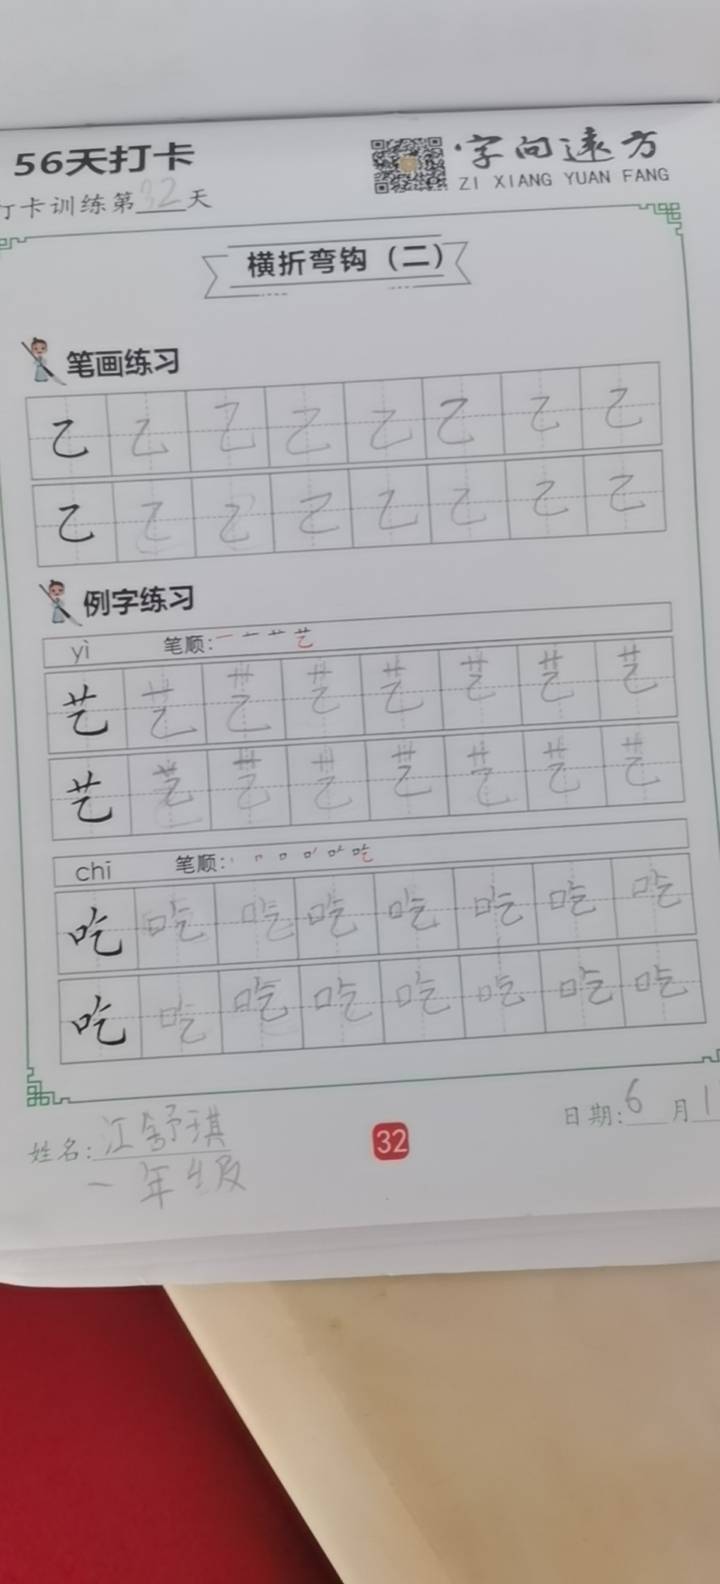 56天打卡
·字向遠方
ZI XIANG YUAN FANG
打卡训练第32天
横折弯钩（二）
笔画练习
乙 乙 乙 乙 乙 乙 乙 乙
乙 乙 乙 乙 乙 乙 乙 乙
例字练习
yì 笔顺：一 十 艹 艺
艺 艺 艺 艺 艺 艺 艺 艺
艺 艺 艺 艺 艺 艺 艺 艺
chī 笔顺：
吃 吃 吃 吃 吃 吃 吃 吃
吃 吃 吃 吃 吃 吃 吃 吃
姓名：江舒琪
32
日期：6月1
一年级